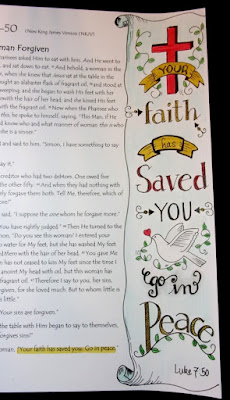 -50 (New King James Version (NKJV)
man Forgiven
harisees asked Him to eat with him. And He went to
and sat down to eat. And behold, a woman in the
r, when she knew that Jesus sat at the table in the
ought an alabaster flask of fragrant oil, and stood at
weeping; and she began to wash His feet with her
with the hair of her head; and she kissed His feet
with the fragrant oil. Now when the Pharisee who
this, he spoke to himself, saying, "This Man, if He
know who and what manner of woman this is who
she is a sinner."
and said to him, "Simon, I have something to say
ay it."
creditor who had two debtors. One owed five
the other fifty. And when they had nothing with
ly forgave them both. Tell Me, therefore, which of
ore?"
said, "I suppose the one whom he forgave more."
"You have rightly judged." Then He turned to the
on, "Do you see this woman? I entered your
water for My feet, but she has washed My feet
them with the hair of her head. You gave Me
has not ceased to kiss My feet since the time I
anoint My head with oil, but this woman has
ragrant oil. Therefore I say to you, her sins,
orgiven, for she loved much. But to whom little is
s little."
Your sins are forgiven."
the table with Him began to say to themselves,
forgives sins?"
woman, "Your faith has saved you. Go in peace."
YOUR
faith
has
Saved
YOU
go in
Peace
Luke 7:50